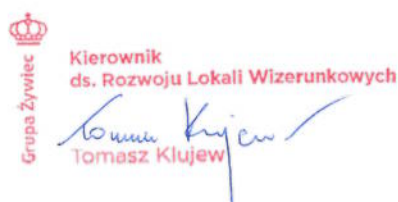 Grupa Żywiec
Kierownik
ds. Rozwoju Lokali Wizerunkowych
Tomasz Klujew